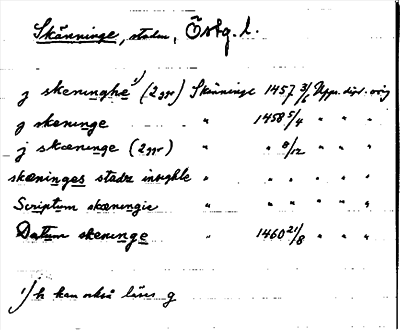 Skänninge, staden, Östg. l.
j skeninghe ¹⁾ (2 ggr) Skänninge 1457 3/6 Upps. dipl. orig
j skeninge " 1458 5/4 " " "
j skæninge (2 ggr) " " 8/12 " " "
skæninges stadz insighle " " " " " "
Scriptum skæningie " " " " " "
Datum skeninge " 1460 21/8 " " "
¹⁾ h kan också läses g